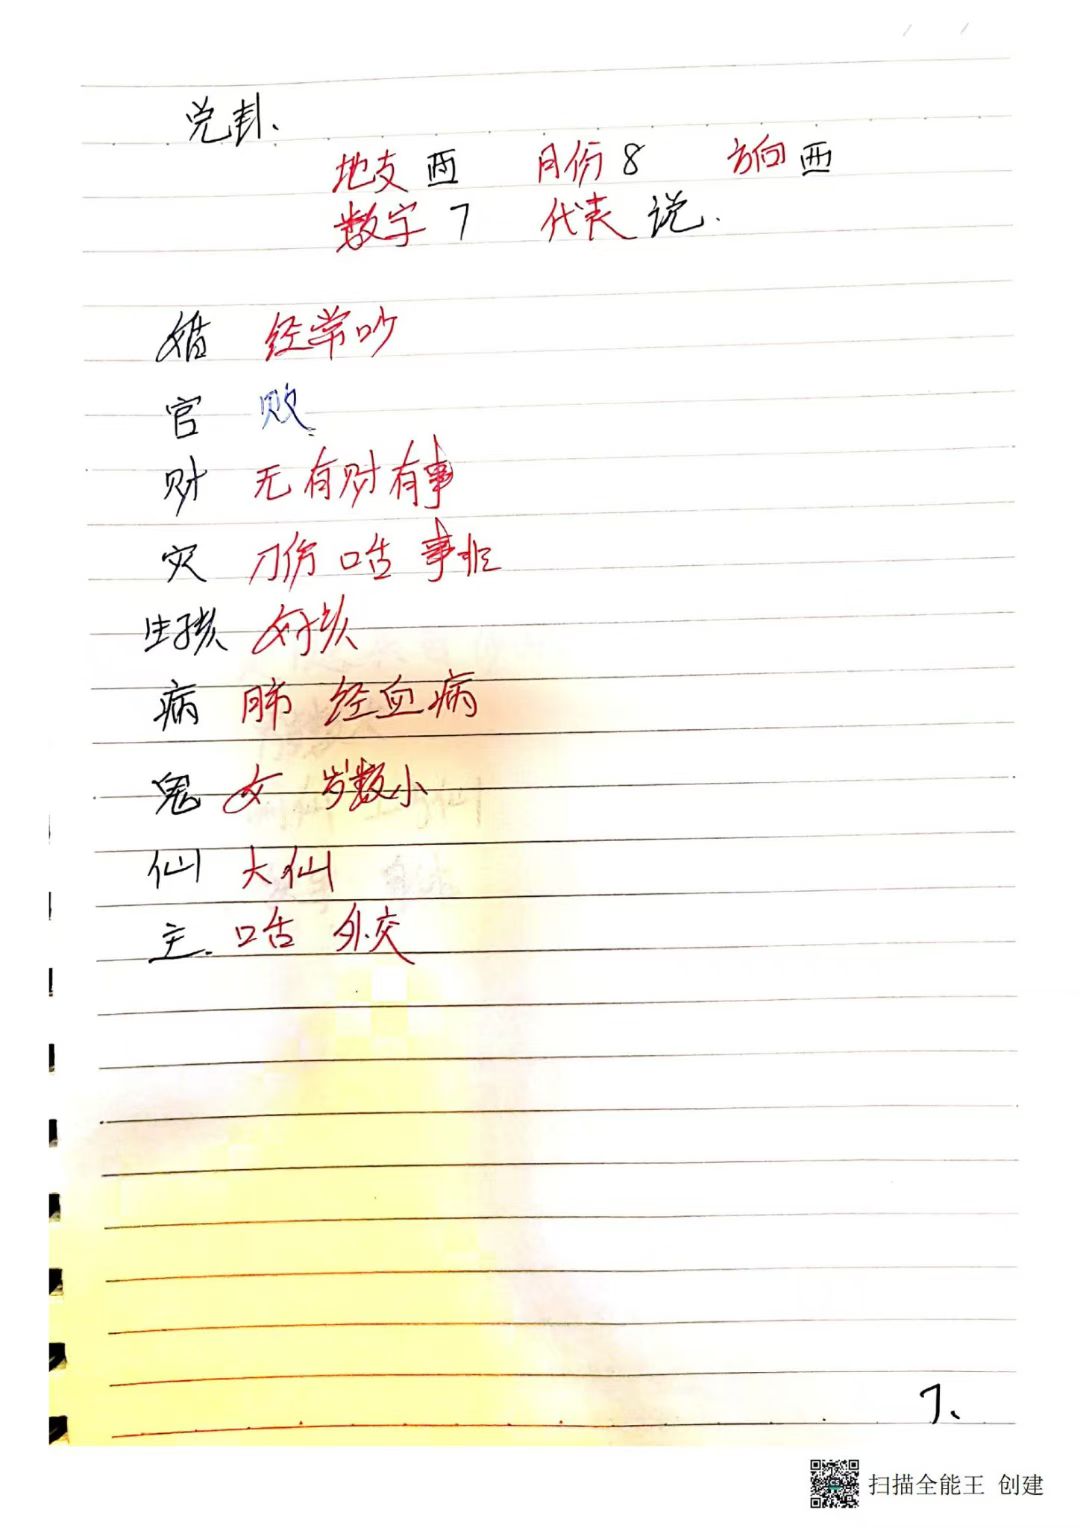 兑卦、
地支 酉 月份 8 方向 西
数字 7 代表 说.
婚 经常吵
官 败
财 无有财有事
灾 刀伤 口咶 事非
生孩 女孩
病 肺 经血病
鬼 女 岁数小
仙 大仙
主. 口咶 外交
7、
扫描全能王 创建